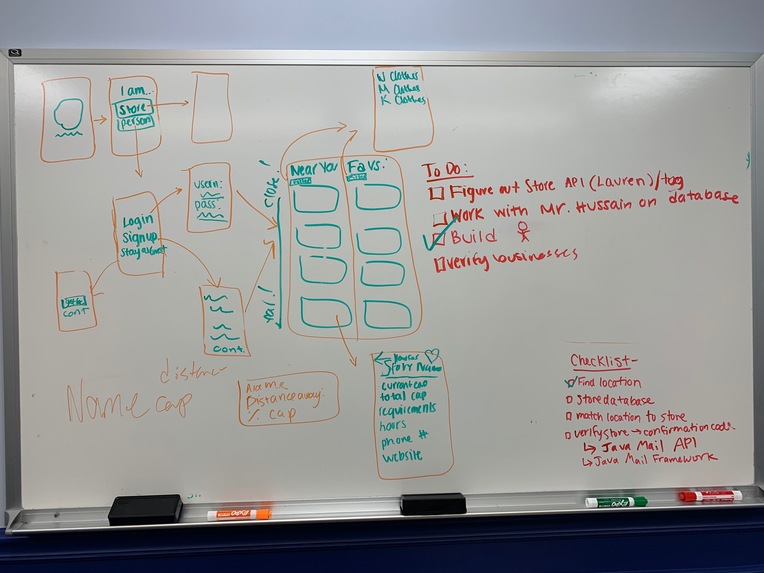 I am...
Store
person
Login
Signup
Stay as Guest
usern:
pass:
cont
cont.
close!
far!
Near You
Favs:
W Clothes
M Clothes
K Clothes
Store Name
current cap
total cap
requirements
hours
phone #
website
Name
distance
cap
Name
Distance away:
% cap
To Do:
Figure out Store API (Lauren) / tag
Work with Mr. Hussain on database
Build
verify businesses
Checklist-
Find location
store database
match location to store
verify store → confirmation code.
↳ Java Mail API
↳ Java Mail Framework
EXPO
EXPO
EXPO